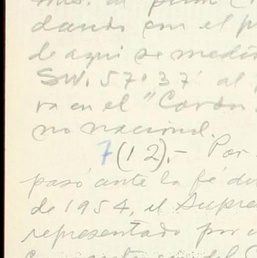 dando con el p
de aqui se medir
SW. 57°37' al
va en el "Coron
no nacional.
7(12).- Por
pasó ante la fé de
de 1954, el Supre
representado por